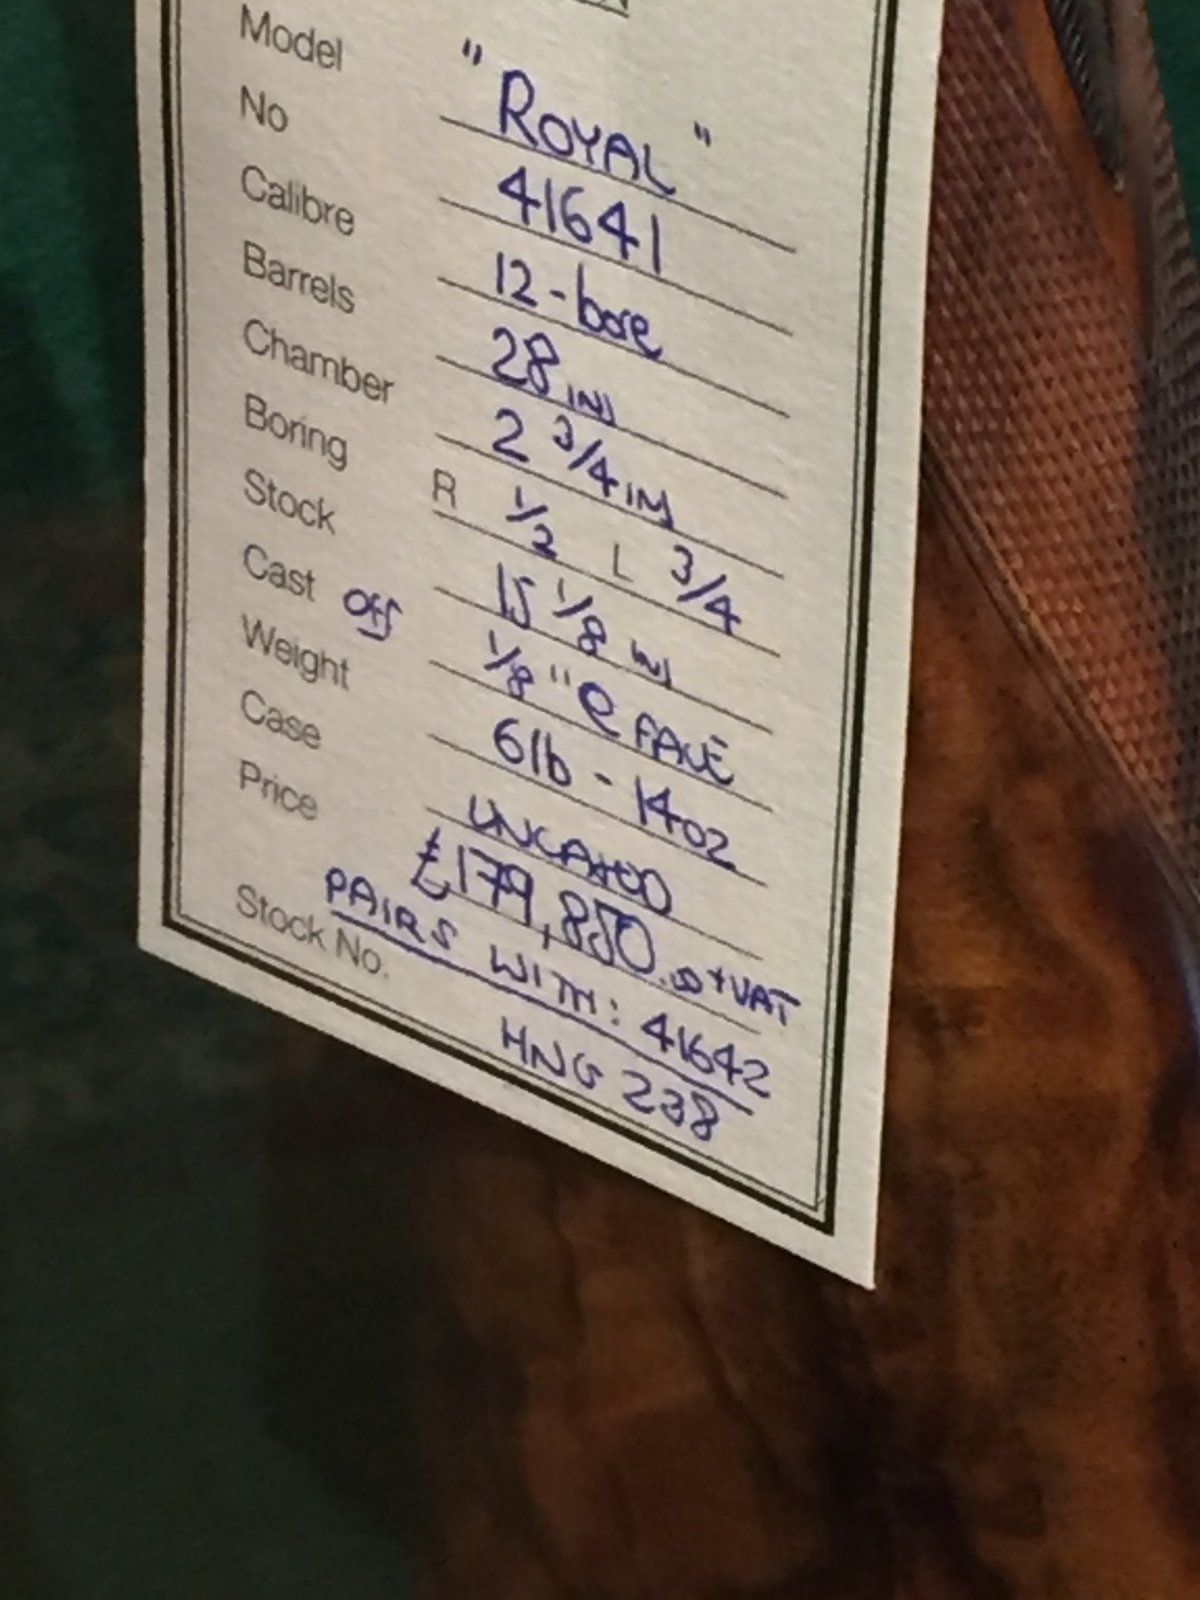 Model "ROYAL"
No 41641
Calibre 12-bore
Barrels 28 IN
Chamber 2 3/4 IN
Boring R 1/2 L 3/4
Stock 15 1/8 IN
Cast off 1/8" @ FACE
Weight 6lb - 14oz
Case
Price £179,850.00 + VAT
PAIRS WITH: 41642
Stock No. HNG 238